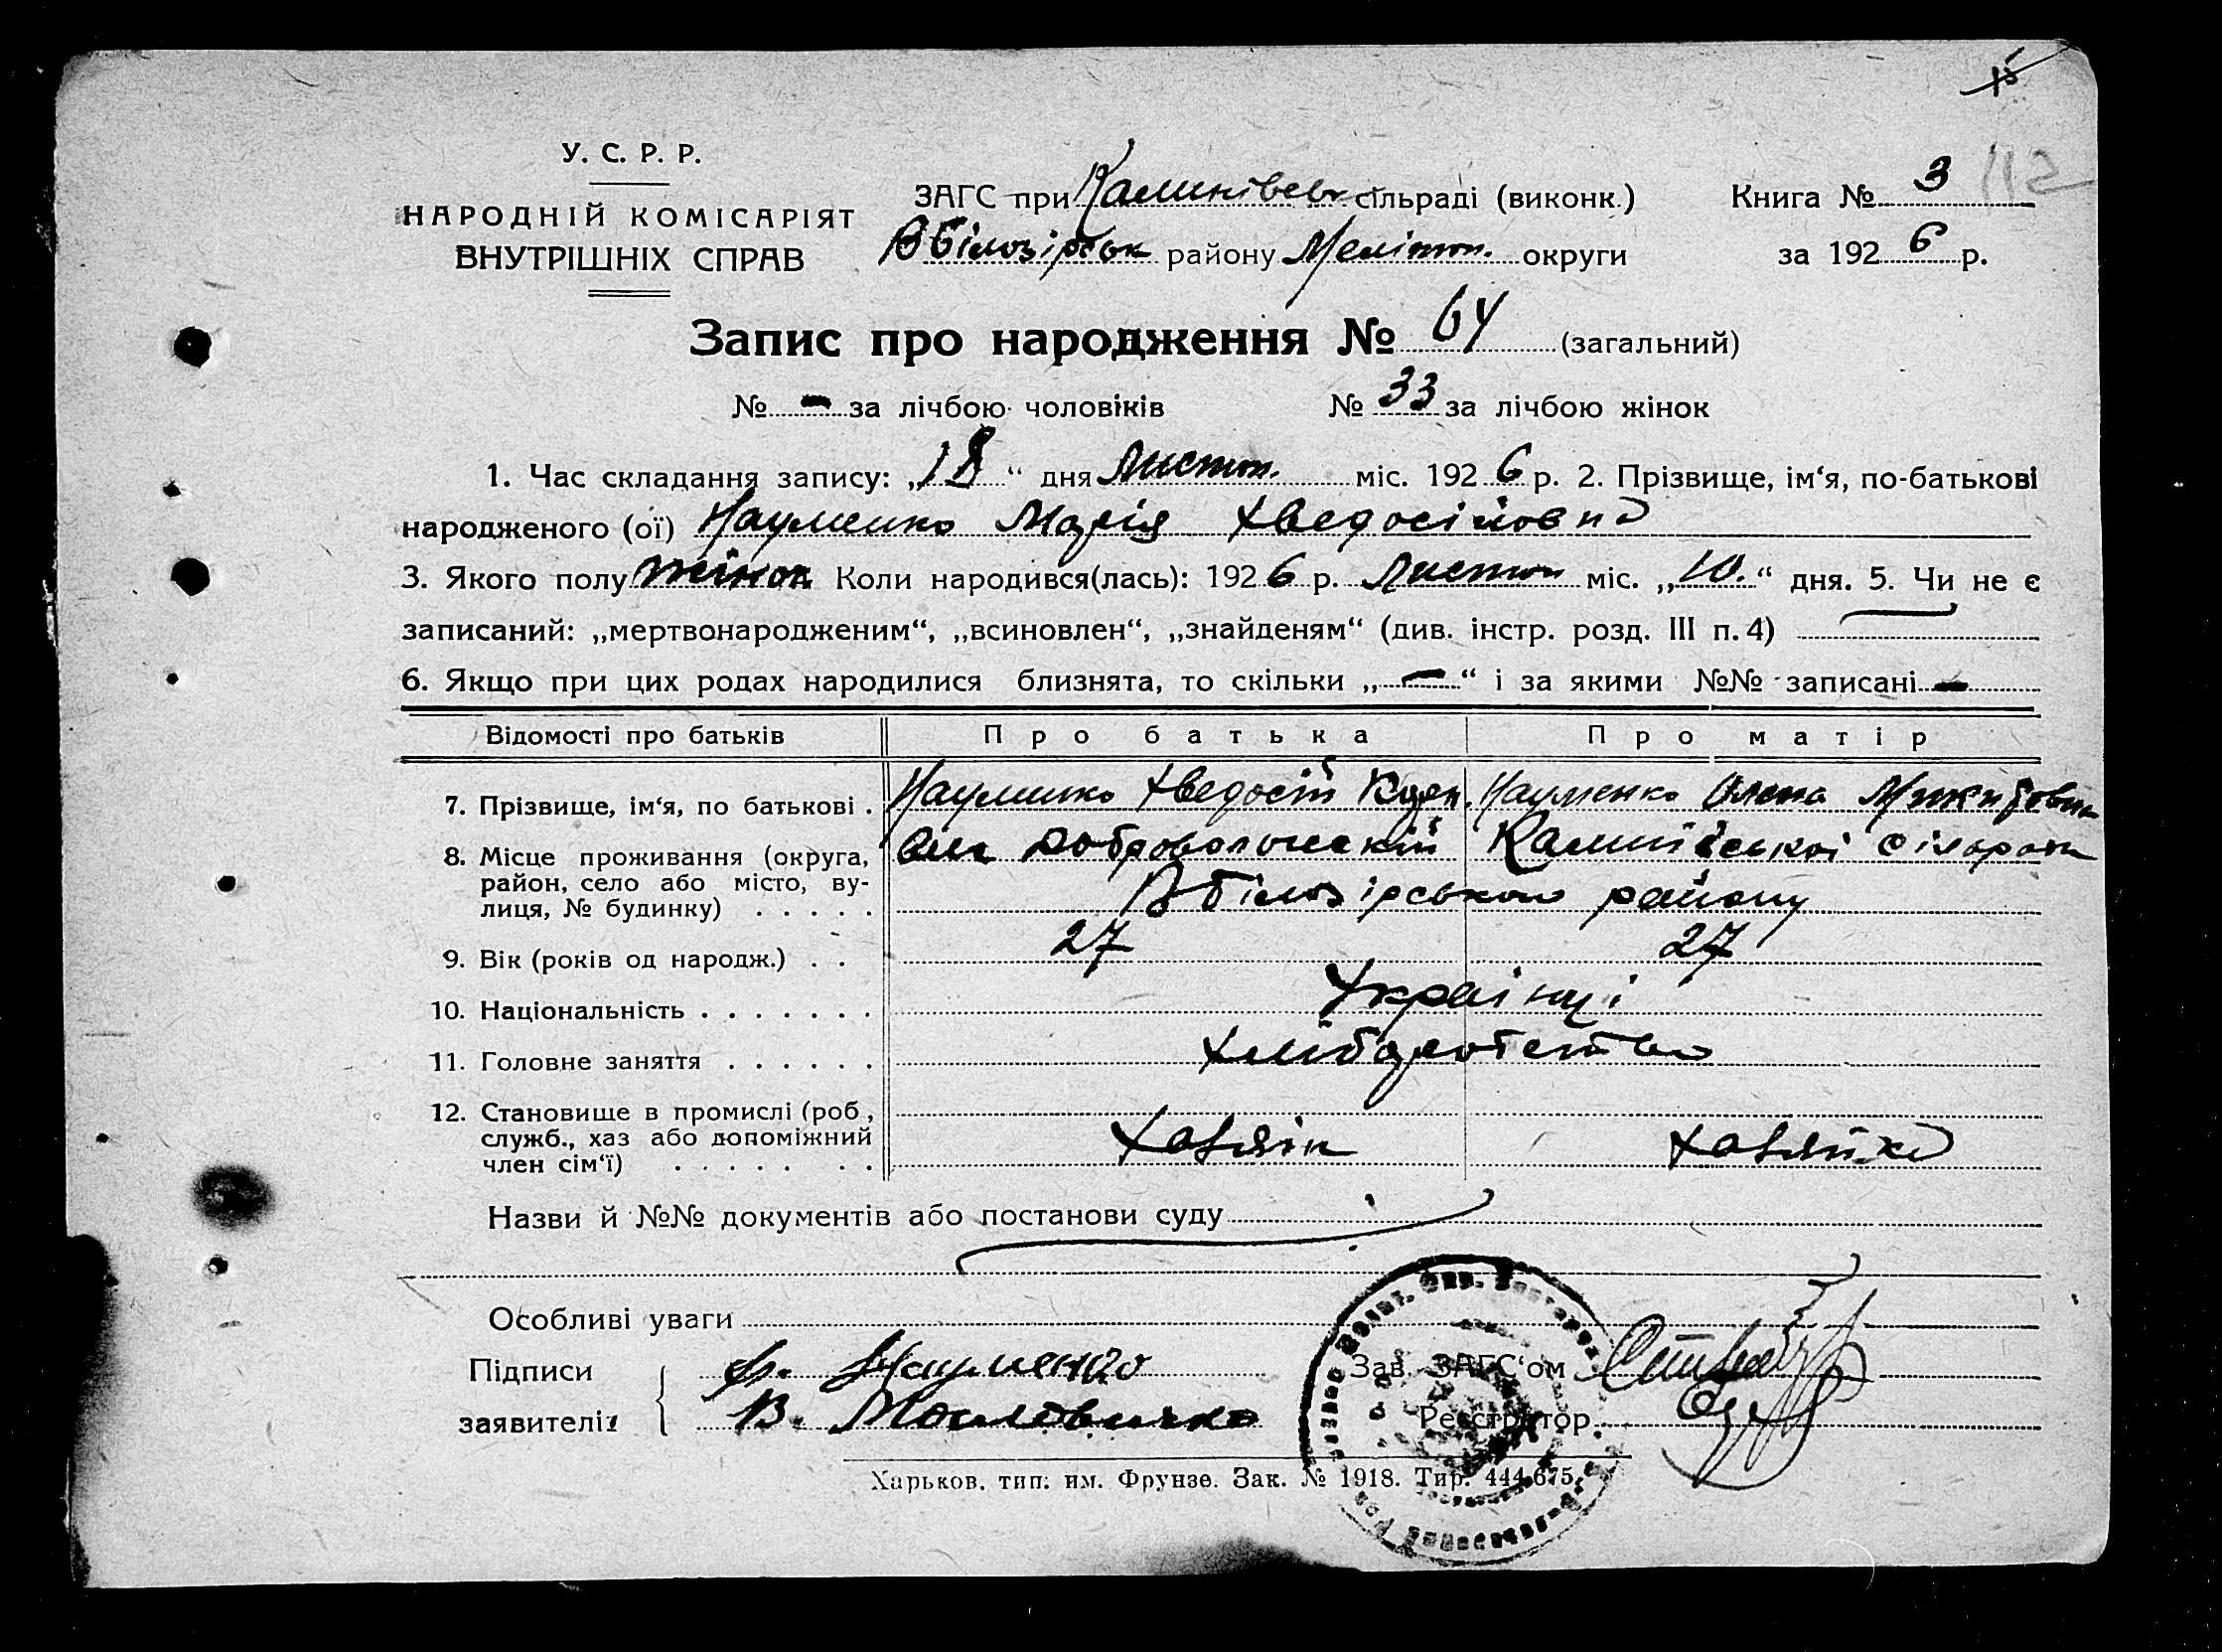 15
У. С. Р. Р.
НАРОДНІЙ КОМІСАРІЯТ
ВНУТРІШНІХ СПРАВ
ЗАГС при Калинівськ сільраді (виконк.)
Книга № 3
112
Вбілозірськ району Мелітоп. округи
за 1926 р.
Запис про народження № 64 (загальний)
№ - за лічбою чоловіків № 33 за лічбою жінок
1. Час складання запису: „18“ дня Листоп. міс. 1926 р. 2. Прізвище, ім‘я, по-батькові
народженого (ої) Науменко Марія Хведосійовна
3. Якого полу жіноч. Коли народився(лась): 1926 р. Листоп міс. „10.“ дня. 5. Чи не є
записаний: „мертвонародженим“, „всиновлен“, „знайденям“ (див. інстр. розд. III п. 4) —
6. Якщо при цих родах народилися близнята, то скільки „—“ і за якими №№ записані —
Відомості про батьків Про батька Про матір
7. Прізвище, ім‘я, по батькові . Науменко Хведосій Науменко Олена
8. Місце проживання (округа,
район, село або місто, ву-
лиця, № будинку) . . . . .
Калинівської сільради
Вбілозірського району
9. Вік (років од народж.) . . 27 27
10. Національність . . . . . . . Українці
11. Головне заняття . . . . . . Хліборобство
12. Становище в промислі (роб.,
служб., хаз або допоміжний
член сім‘ї) . . . . . . .
Хазяїн Хазяйка
Назви й №№ документів або постанови суду
Особливі уваги
Підписи
заявителів
Науменко
В.
Зав. ЗАГС‘ом
Реєстратор
Харьков. тип. им. Фрунзе. Зак. № 1918. Тир. 444.675.